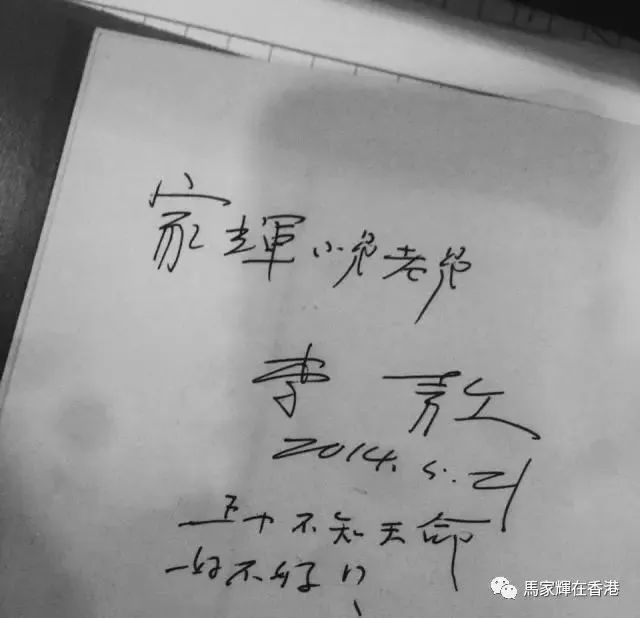 家輝小兒老兒
李敖
2014.5.21
五十不知天命
—好不好?
馬家輝在香港